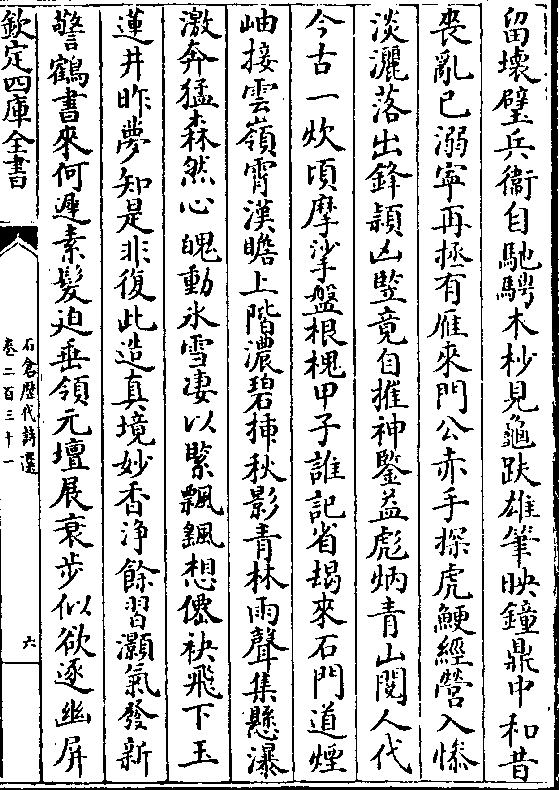 留壊璧兵衞自馳騁木杪見龜趺雄筆映鐘鼎中和昔
喪亂已溺寜再拯有雁來門公赤手探虎鯁經營入慘
淡灑落出鋒穎凶豎竟自摧神鑒益彪炳青山閲人代
今古一炊頃摩挲盤根槐甲子誰記省朅來石門道煙
岫接雲嶺霄漢瞻上階濃碧揷秋影青林雨聲集懸瀑
激奔猛森然心魄動氷雪凄以緊飄飄想僊袂飛下玉
蓮井昨夢知是非復此造真境妙香浄餘習灝氣發新
警鶴書來何遲素髪迫垂領元壇展衰步似欲逐幽屏
欽定四庫全書
石倉歴代詩選
卷二百三十一
六